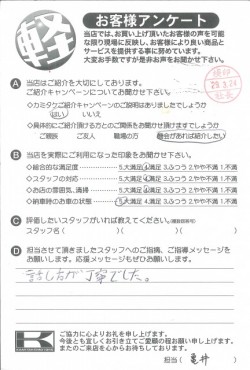 軽
お客様アンケート
当店では、お買い上げ頂いたお客様の声を可能
な限り現場に反映し、お客様により良い商品と
サービスを提供する事に努めています。
大変お手数ですが是非お声をお聞かせ下さい。
A 当店はご紹介を大切にしております。
ご紹介キャンペーンについてお聞かせ下さい。
◇カミタケご紹介キャンペーンのご説明はありましたでしょうか
はい いいえ
◇具体的にご紹介頂ける方とのご関係をお聞かせ頂けますでしょうか
ご親戚 ご友人 職場の方 機会があれば紹介したい
B 当店を実際にご利用になった印象をお聞かせ下さい。
◇総合的な満足度 5.大満足 4.満足 3.ふつう 2.やや不満 1.不満
◇スタッフの対応 5.大満足 4.満足 3.ふつう 2.やや不満 1.不満
◇お店の雰囲気、清掃 5.大満足 4.満足 3.ふつう 2.やや不満 1.不満
◇納車時のお車の状態 5.大満足 4.満足 3.ふつう 2.やや不満 1.不満
C 評価したいスタッフがいれば教えてください。
スタッフ名( )( )
D 担当させて頂きましたスタッフへのご指摘、ご指導メッセージを
お願いします。応援メッセージもぜひお願いします。
話し方が丁寧でした。
K
ご協力に心よりお礼を申し上げます。
今後とも宜しくお引き立てご愛顧の程お願い申し上げます。
またのご来店を心からお待ちしております。
担当( 亀井 )